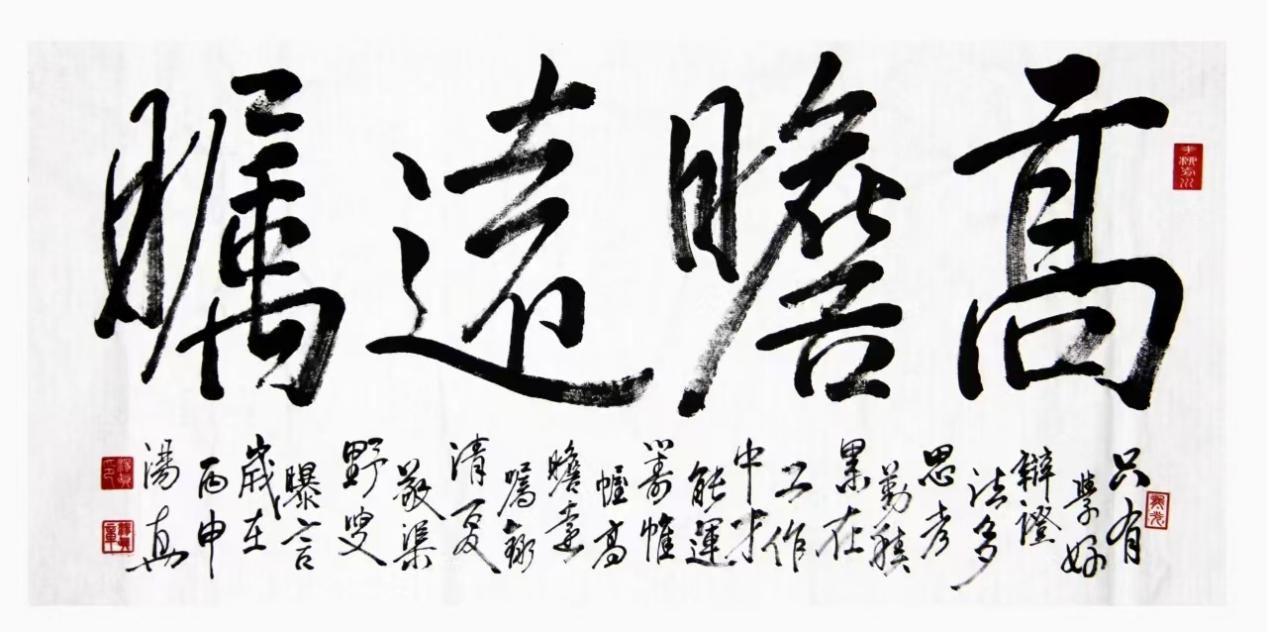 高瞻遠矚
只有
學好
辯證
法多
思考
勤積
累在
工作
中才
能運
籌帷
幄高
瞻遠
矚錄
清夏
敬渠
野叟
曝言
歲在
丙申
湯真